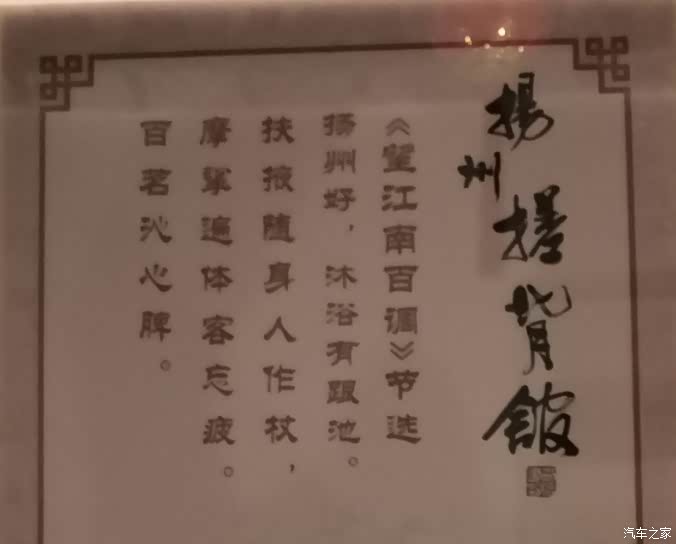 揚州搓背館
《望江南百调》节选
扬州好，沐浴有跟池。
扶掖随身人作杖，
摩挲遍体客忘疲。
百茗沁心脾。
汽车之家